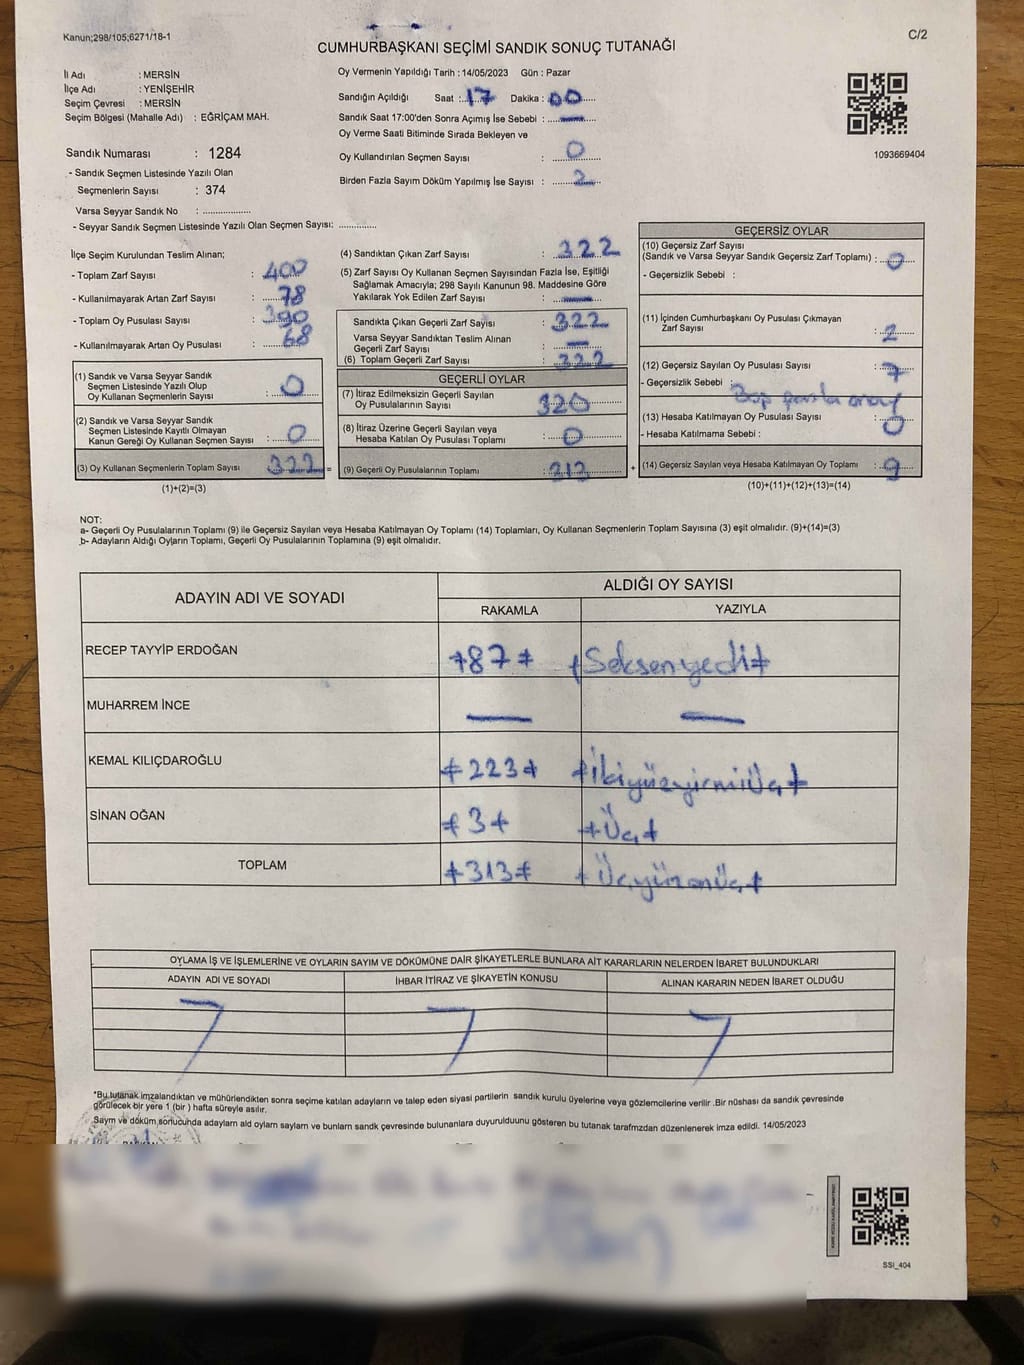 Kanun;298/105;6271/18-1
C/2
CUMHURBAŞKANI SEÇİMİ SANDIK SONUÇ TUTANAĞI
İl Adı : MERSİN
İlçe Adı : YENİŞEHİR
Seçim Çevresi : MERSİN
Seçim Bölgesi (Mahalle Adı) : EĞRİÇAM MAH.
Sandık Numarası : 1284
- Sandık Seçmen Listesinde Yazılı Olan
Seçmenlerin Sayısı : 374
Varsa Seyyar Sandık No : ..................
- Seyyar Sandık Seçmen Listesinde Yazılı Olan Seçmen Sayısı: ..............
Oy Vermenin Yapıldığı Tarih : 14/05/2023 Gün : Pazar
Sandığın Açıldığı Saat : 17 Dakika : 00
Sandık Saat 17:00'den Sonra Açımış İse Sebebi : —
Oy Verme Saati Bitiminde Sırada Bekleyen ve
Oy Kullandırılan Seçmen Sayısı : 0
Birden Fazla Sayım Döküm Yapılmış İse Sayısı : 2
1093669404
İlçe Seçim Kurulundan Teslim Alınan;
- Toplam Zarf Sayısı : 400
- Kullanılmayarak Artan Zarf Sayısı : 78
- Toplam Oy Pusulası Sayısı : 390
- Kullanılmayarak Artan Oy Pusulası : 68
(1) Sandık ve Varsa Seyyar Sandık
Seçmen Listesinde Yazılı Olup
Oy Kullanan Seçmenlerin Sayısı : 0
(2) Sandık ve Varsa Seyyar Sandık
Seçmen Listesinde Kayıtlı Olmayan
Kanun Gereği Oy Kullanan Seçmen Sayısı : 0
(3) Oy Kullanan Seçmenlerin Toplam Sayısı 322 =
(1)+(2)=(3)
(4) Sandıktan Çıkan Zarf Sayısı : 322
(5) Zarf Sayısı Oy Kullanan Seçmen Sayısından Fazla İse, Eşitliği
Sağlamak Amacıyla; 298 Sayılı Kanunun 98. Maddesine Göre
Yakılarak Yok Edilen Zarf Sayısı : —
Sandıkta Çıkan Geçerli Zarf Sayısı : 322
Varsa Seyyar Sandıktan Teslim Alınan
Geçerli Zarf Sayısı : —
(6) Toplam Geçerli Zarf Sayısı : 322
GEÇERLİ OYLAR
(7) İtiraz Edilmeksizin Geçerli Sayılan
Oy Pusulalarının Sayısı : 320
(8) İtiraz Üzerine Geçerli Sayılan veya
Hesaba Katılan Oy Pusulası Toplamı : 0
(9) Geçerli Oy Pusulalarının Toplamı : 313 +
GEÇERSİZ OYLAR
(10) Geçersiz Zarf Sayısı
(Sandık ve Varsa Seyyar Sandık Geçersiz Zarf Toplamı) : 0
- Geçersizlik Sebebi :
(11) İçinden Cumhurbaşkanı Oy Pusulası Çıkmayan
Zarf Sayısı : 2
(12) Geçersiz Sayılan Oy Pusulası Sayısı : 7
- Geçersizlik Sebebi :
(13) Hesaba Katılmayan Oy Pusulası Sayısı : 0
- Hesaba Katılmama Sebebi :
(14) Geçersiz Sayılan veya Hesaba Katılmayan Oy Toplamı : 9
(10)+(11)+(12)+(13)=(14)
NOT:
a- Geçerli Oy Pusulalarının Toplamı (9) ile Geçersiz Sayılan veya Hesaba Katılmayan Oy Toplamı (14) Toplamları, Oy Kullanan Seçmenlerin Toplam Sayısına (3) eşit olmalıdır. (9)+(14)=(3)
b- Adayların Aldığı Oyların Toplamı, Geçerli Oy Pusulalarının Toplamına (9) eşit olmalıdır.
ADAYIN ADI VE SOYADI
ALDIĞI OY SAYISI
RAKAMLA YAZIYLA
RECEP TAYYİP ERDOĞAN +87+ +Seksenyedi+
MUHARREM İNCE — —
KEMAL KILIÇDAROĞLU +223+ +İkiyüzyirmiÜç+
SİNAN OĞAN +3+ +Üç+
TOPLAM +313+ +ÜçyüzonÜç+
OYLAMA İŞ VE İŞLEMLERİNE VE OYLARIN SAYIM VE DÖKÜMÜNE DAİR ŞİKAYETLERLE BUNLARA AİT KARARLARIN NELERDEN İBARET BULUNDUKLARI
ADAYIN ADI VE SOYADI İHBAR İTİRAZ VE ŞİKAYETİN KONUSU ALINAN KARARIN NEDEN İBARET OLDUĞU
*Bu tutanak imzalandıktan ve mühürlendikten sonra seçime katılan adayların ve talep eden siyasi partilerin sandık kurulu üyelerine veya gözlemcilerine verilir .Bir nüshası da sandık çevresinde
görülecek bir yere 1 (bir ) hafta süreyle asılır.
Sayım ve döküm sonucunda adayların ald oyların sayılarını ve bunların sandık çevresinde bulunanlara duyurulduunu gösteren bu tutanak tarafmzdan düzenlenerek imza edildi. 14/05/2023
SSI_404